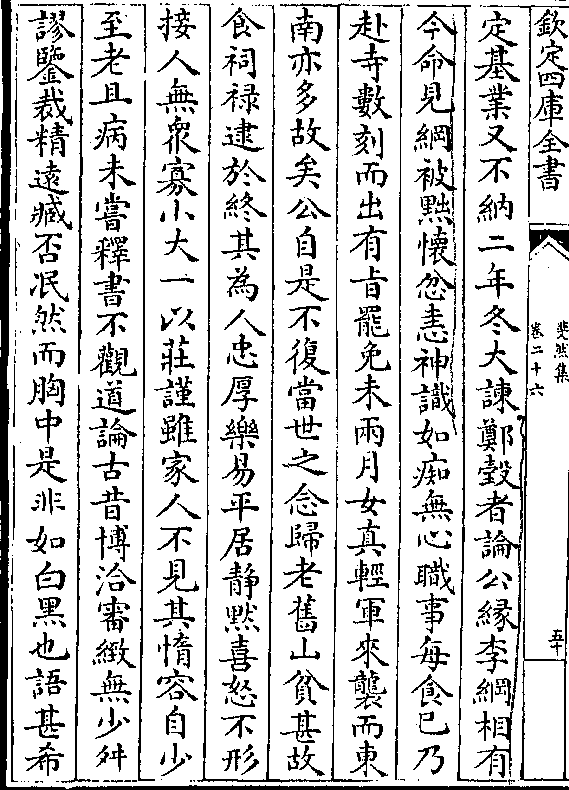 欽定四庫全書
斐然集
卷二十六
五十
定基業又不納二年冬大諫鄭瑴者論公縁李綱相有
今命見綱被黜懷忿恚神識如痴無心職事每食已乃
赴寺數刻而出有㫖罷免未兩月女真輕軍來襲而東
南亦多故矣公自是不復當世之念歸老舊山貧甚故
食祠禄逮於終其為人忠厚樂易平居静黙喜怒不形
接人無衆寡小大一以莊謹雖家人不見其惰容自少
至老且病未嘗釋書不觀道論古昔博洽審緻無少舛
謬鑒裁精遠臧否泯然而胸中是非如白黒也語甚希